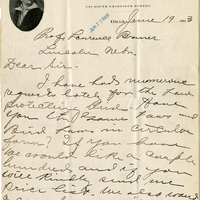 June 19 03
Prof Lawrence Bruner
Lincoln Nebr.
Dear Sir:-
I have had numerous
requests lately for the Law
protecting birds. Have
you the Game Laws and
Bird Laws in circular
form? If you have
we would like a couple
hundred and if you
will kindly send me
price list. We also want